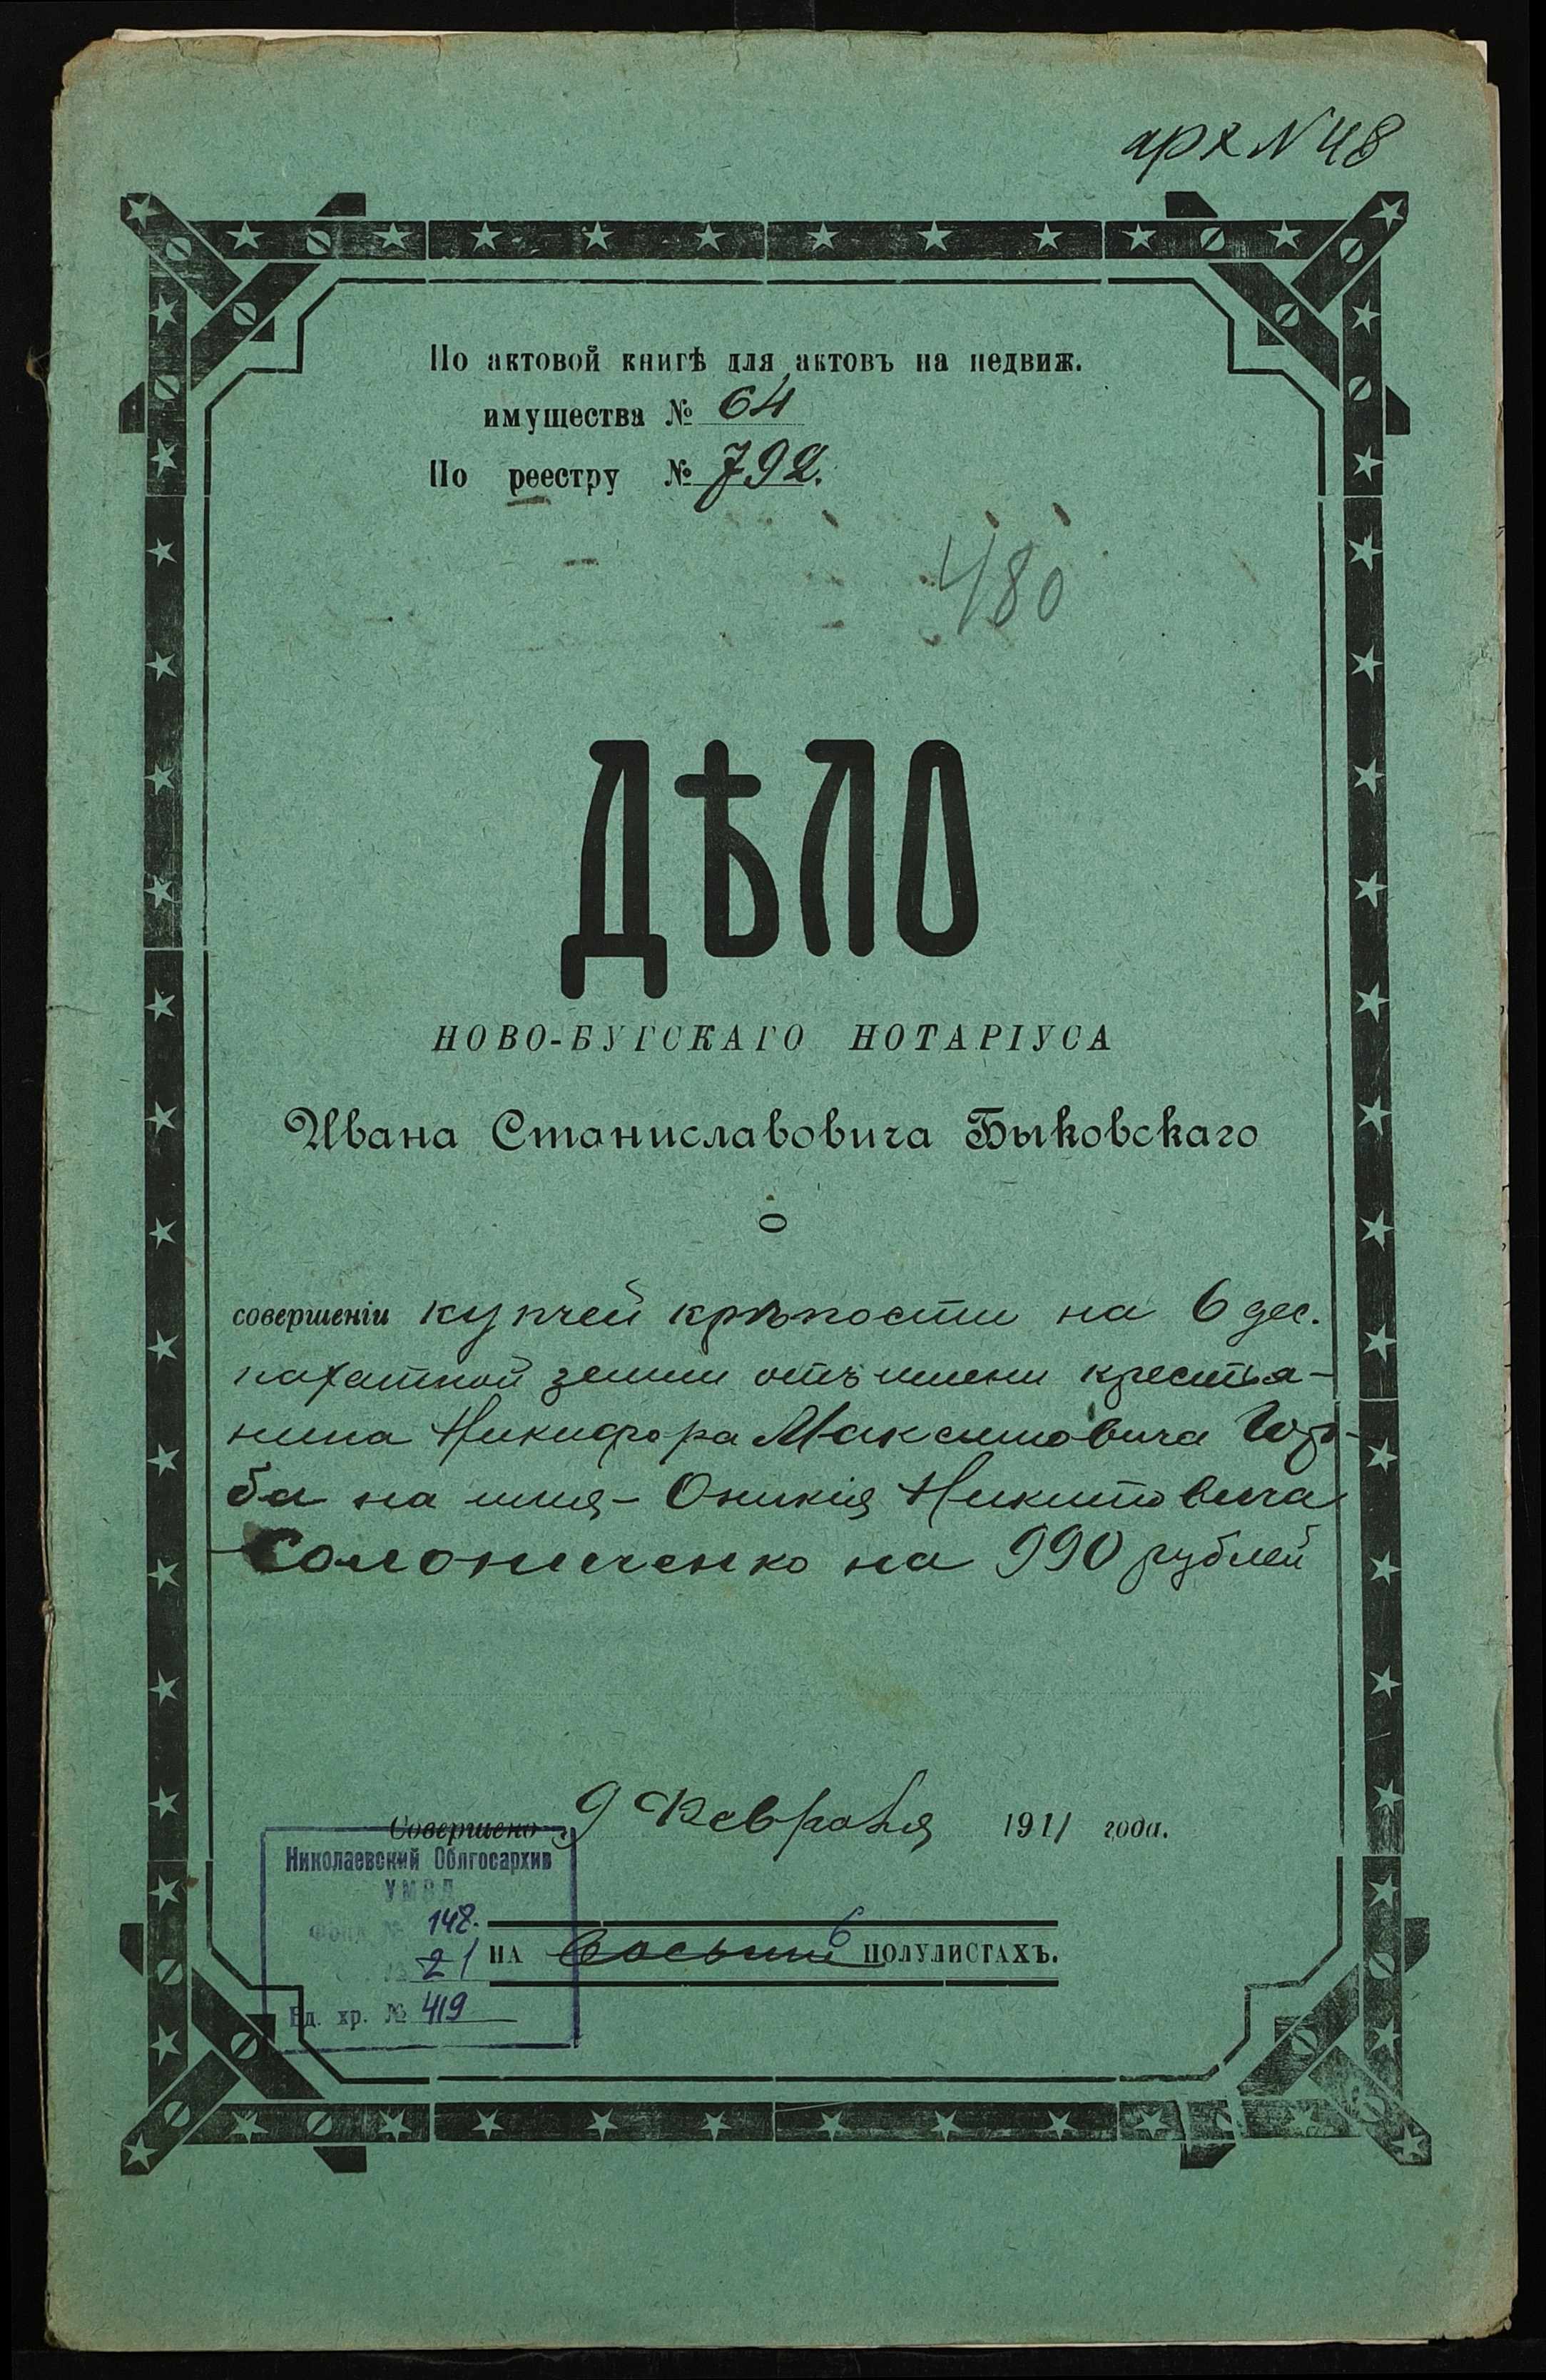 арх N 48
По актовой книгѣ для актовъ на недвиж.
имущества № 64
По реестру № 792.
480
ДѢЛО
НОВО-БУГСКАГО НОТАРІУСА
Ивана Станиславовича Быковскаго
О
совершеніи купчей крѣпости на 6 дес.
пахатной земли отъ имени крестья-
нина Никифора Максимовича Гор-
ба на имя - Оникія Никитовича
Солониченко на 990 рублей
Совершено 9 Февраля 1911 года.
Николаевский Облгосархив
УМВД
Фонд № 148.
№ 21
Ед. хр. № 419
НА восьми 6 ПОЛУЛИСТАХЪ.